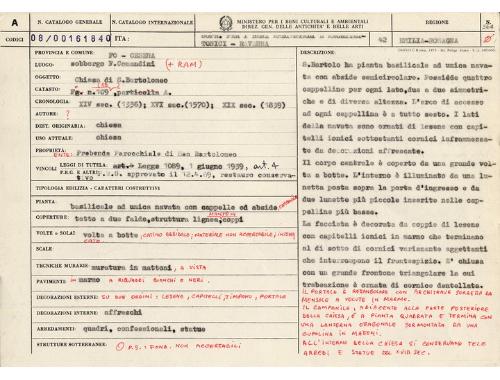 A
N. CATALOGO GENERALE
N. CATALOGO INTERNAZIONALE
MINISTERO PER I BENI CULTURALI E AMBIENTALI
DIREZ. GEN. DELLE ANTICHITA' E BELLE ARTI
REGIONE
N.
CODICI
08/00161840
TONICI - RAVENNA
42
EMILIA-ROMAGNA
PROVINCIA E COMUNE:
FO - CESENA
LUOGO:
sobborgo N.Comandini
(+ RAM)
OGGETTO:
Chiesa di S.Bartolomeo
CATASTO:
Fg. n.109, particella A.
CRONOLOGIA:
XIV sec.(1396); XVI sec.(1570); XIX sec.(1898)
AUTORE:
?
DEST. ORIGINARIA:
chiesa
USO ATTUALE:
chiesa
PROPRIETÀ:
ENTE:
Prebenda Parrocchiale di San Bartolomeo
VINCOLI
LEGGI DI TUTELA:
Legge 1089, 1 giugno 1939, art. 4
P.R.G. E ALTRI:
approvato il 12.4.69, restauro conserva-
tivo
TIPOLOGIA EDILIZIA - CARATTERI COSTRUTTIVI
PIANTA:
basilicale ad unica navata con cappelle ed abside
COPERTURE:
tetto a due falde, struttura lignea, coppi
MANTO IN
VOLTE o SOLAI:
volta a botte, CATINO ABSIDALE; MATERIALE NON ACCERTABILE; INTONA
CATO
SCALE:
TECNICHE MURARIE:
muratura in mattoni, A VISTA
PAVIMENTI:
in marmo A RIQUADRI BIANCHI E NERI.
DECORAZIONI ESTERNE:
SU DUE ORDINI: LESENE, CAPITELLI, TIMPANO, PORTALE
DECORAZIONI INTERNE:
affreschi
ARREDAMENTI:
quadri, confessionali, statue
STRUTTURE SOTTERRANEE:
P.S. + FOND. NON ACCERTABILI
DESCRIZIONE:
S.Bartolo ha pianta basilicale ad unica nava-
ta con abside semicircolare. Possiede quattro
cappelline per ogni lato, due a due simmetri-
che e di diversa altezza. L'arco di accesso
ad ogni cappellina è a tutto sesto. I lati
della navata sono ornati di lesene con capi-
telli ionici sottostanti cornici inframezza-
te da decorazioni affrescate.
Il corpo centrale è coperto da una grande vol-
ta a botte. L'interno è illuminato da una lu-
netta posta sopra la porta d'ingresso e da
due lunette più piccole inscritte nelle cap-
pelline più basse.
La facciata è decorata da coppie di lesene
con capitelli ionici in marmo che terminano
al di sotto di cornici variamente aggettanti
che interrompono il frontespizio. E' chiusa
con un grande frontone triangolare la cui
trabeazione è ornata di cornice dentellata.
IL PORTALE È RETTANGOLARE CON ARCHITRAVE SORRETTA DA
MENSOLE A VOLUTE IN MARMO.
IL CAMPANILE, ADIACENTE ALLA PARTE POSTERIORE
DELLA CHIESA, È A PIANTA QUADRATA E TERMINA CON
UNA LANTERNA OTTAGONALE SORMONTATA DA UNA
CUPOLINA IN MATTONI.
ALL'INTERNO DELLA CHIESA SI CONSERVANO TELE
ARREDI E STATUE DEL XVIII SEC.